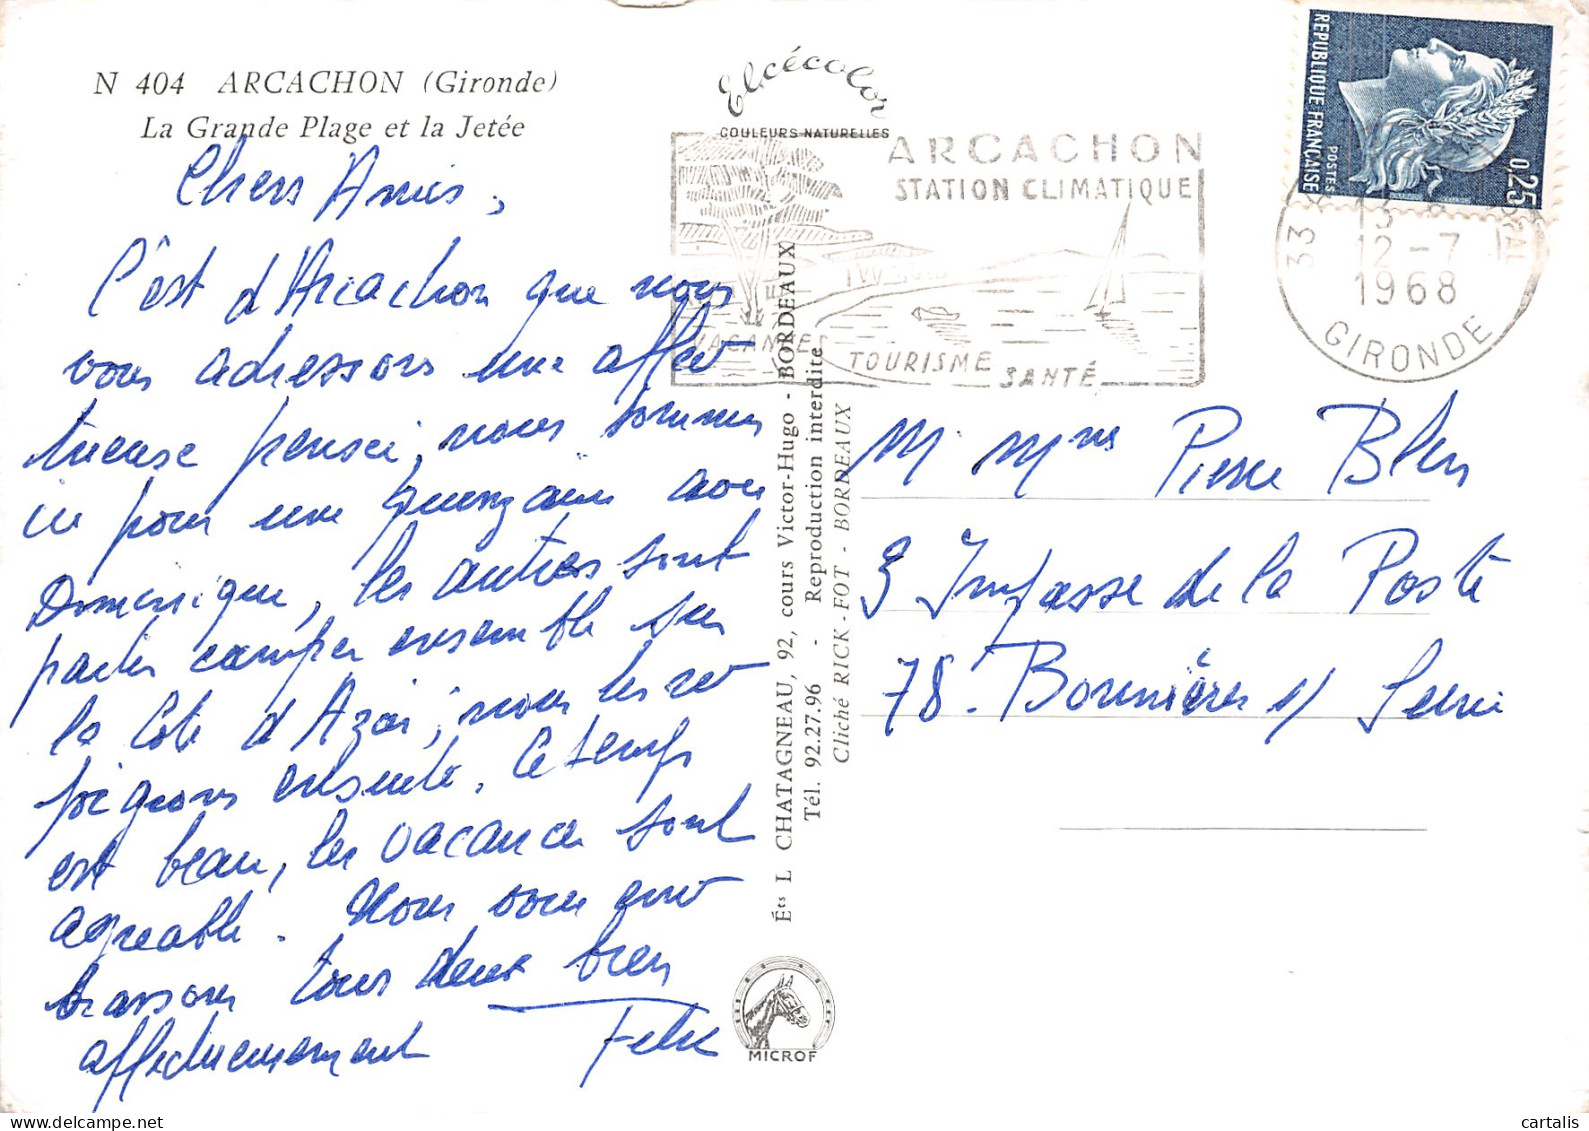 N 404 ARCACHON (Gironde)
La Grande Plage et la Jetée
Chers Amis,
C'est d'Arcachon que nous
vous adressons une affec
tueuse pensée, nous sommes
ici pour une quinzaine avec
Dominique, les autres sont
partis camper ensemble sur
la Côte d'Azur, nous les re
joignons ensuite. Le temps
est beau, les vacances sont
agréable. Nous vous em
brassons tous deux bien
affectueusement
Elcécolor
COULEURS NATURELLES
ARCACHON
STATION CLIMATIQUE
VACANCES
TOURISME
SANTÉ
RÉPUBLIQUE FRANÇAISE
POSTES
0,25
33
13
12-7
1968
GIRONDE
Éts L CHATAGNEAU, 92, cours Victor-Hugo - BORDEAUX
Tél. 92.27.96 - Reproduction interdite
Cliché RICK-FOT - BORDEAUX
M. Mme Pierre
Impasse de la Poste
78. Bonnières s/ Seine
MICROF
cartalis